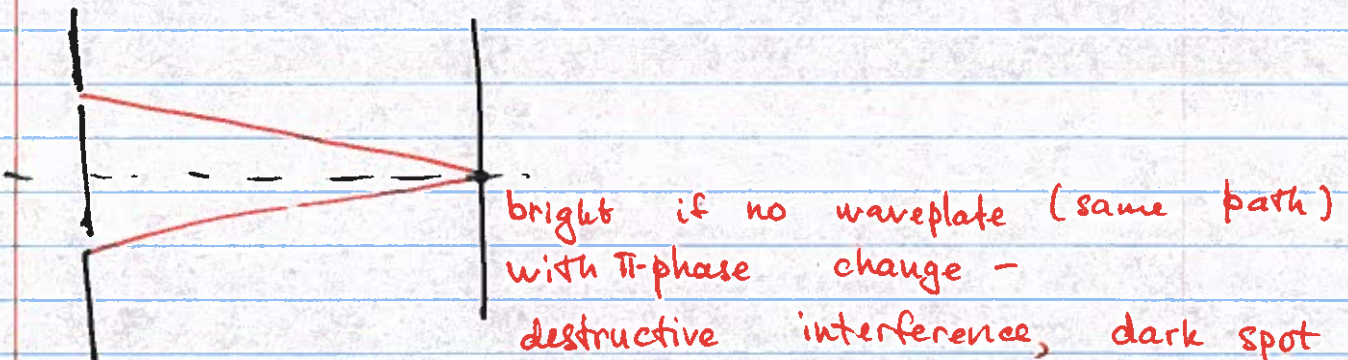 bright if no waveplate (same path)
with π-phase change -
destructive interference, dark spot